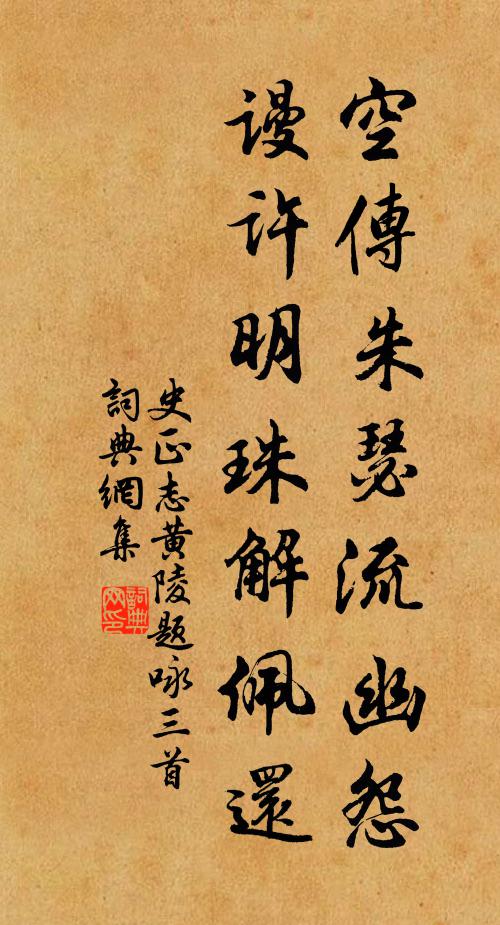 空傳朱瑟流幽怨
谩许明珠解佩還
史正志黄陵題咏三首
詞典網集
詞典
网印